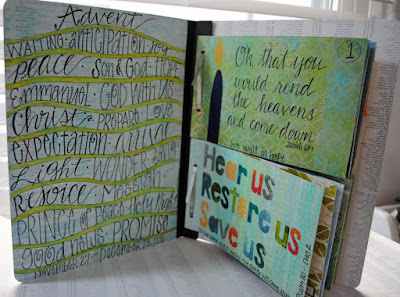 Advent
WAITING anticipation Hope
peace Son of God
Emmanuel GOD WITH US
Christ PREPARE LOVE
EXPECTATION arrival
Light WONDER
Rejoice MESSIAH
PRINCE of Peace Holy Night
good news PROMISE
1
Oh that you
would rend
the heavens
and come down
Isaiah 64:1
we wait in hope
Hear us
Restore us
Save us